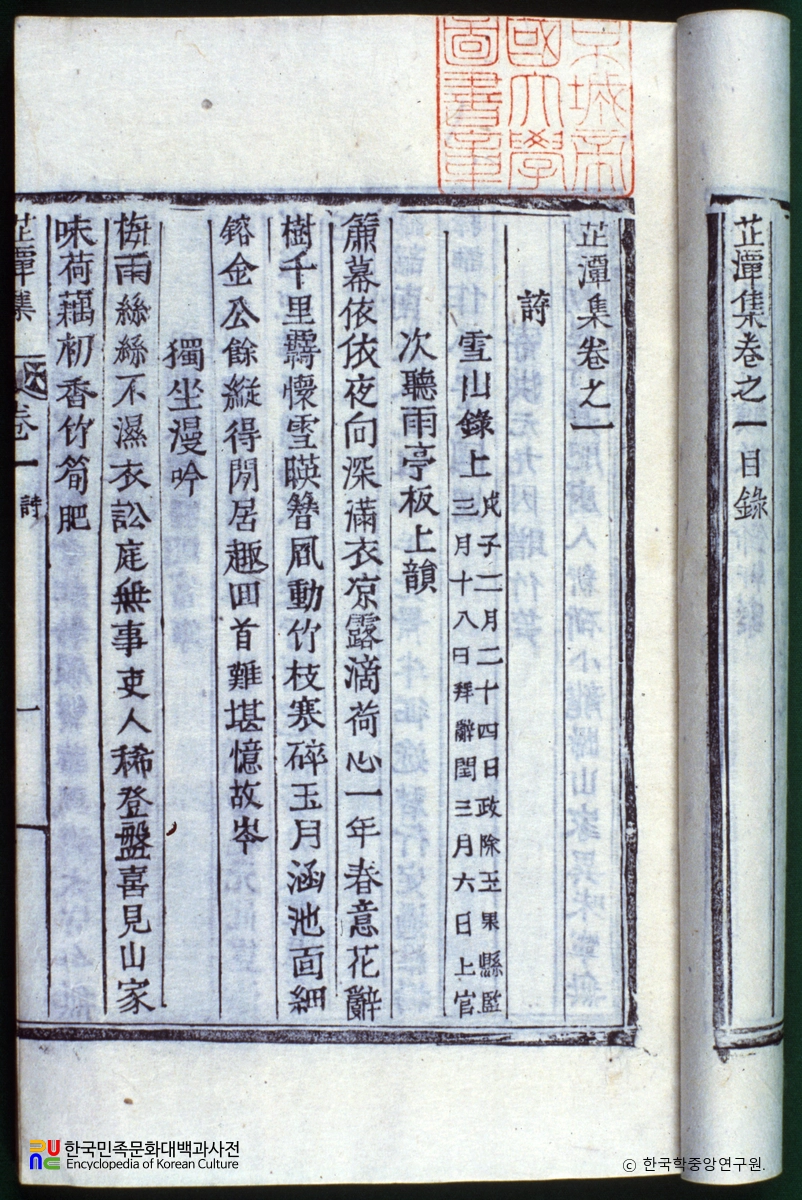 芷潭集卷之一目錄
京城帝
國大學
圖書章
芷潭集卷之一
詩
雪山錄上
戊子二月二十四日政除玉果縣監
三月十八日拜辭閏三月六日上官
次聽雨亭板上韻
簾幕依依夜向深滿衣凉露滴荷心一年春意花辭
樹千里羇懷雪暎簪風動竹枝寒碎玉月涵池面細
鎔金公餘縱得閒居趣回首難堪憶故岑
獨坐漫吟
梅雨絲絲不濕衣訟庭無事吏人稀登盤喜見山家
味荷藕初香竹筍肥
芷潭集
卷一
詩
一
한국민족문화대백과사전
Encyclopedia of Korean Culture
ⓒ 한국학중앙연구원.